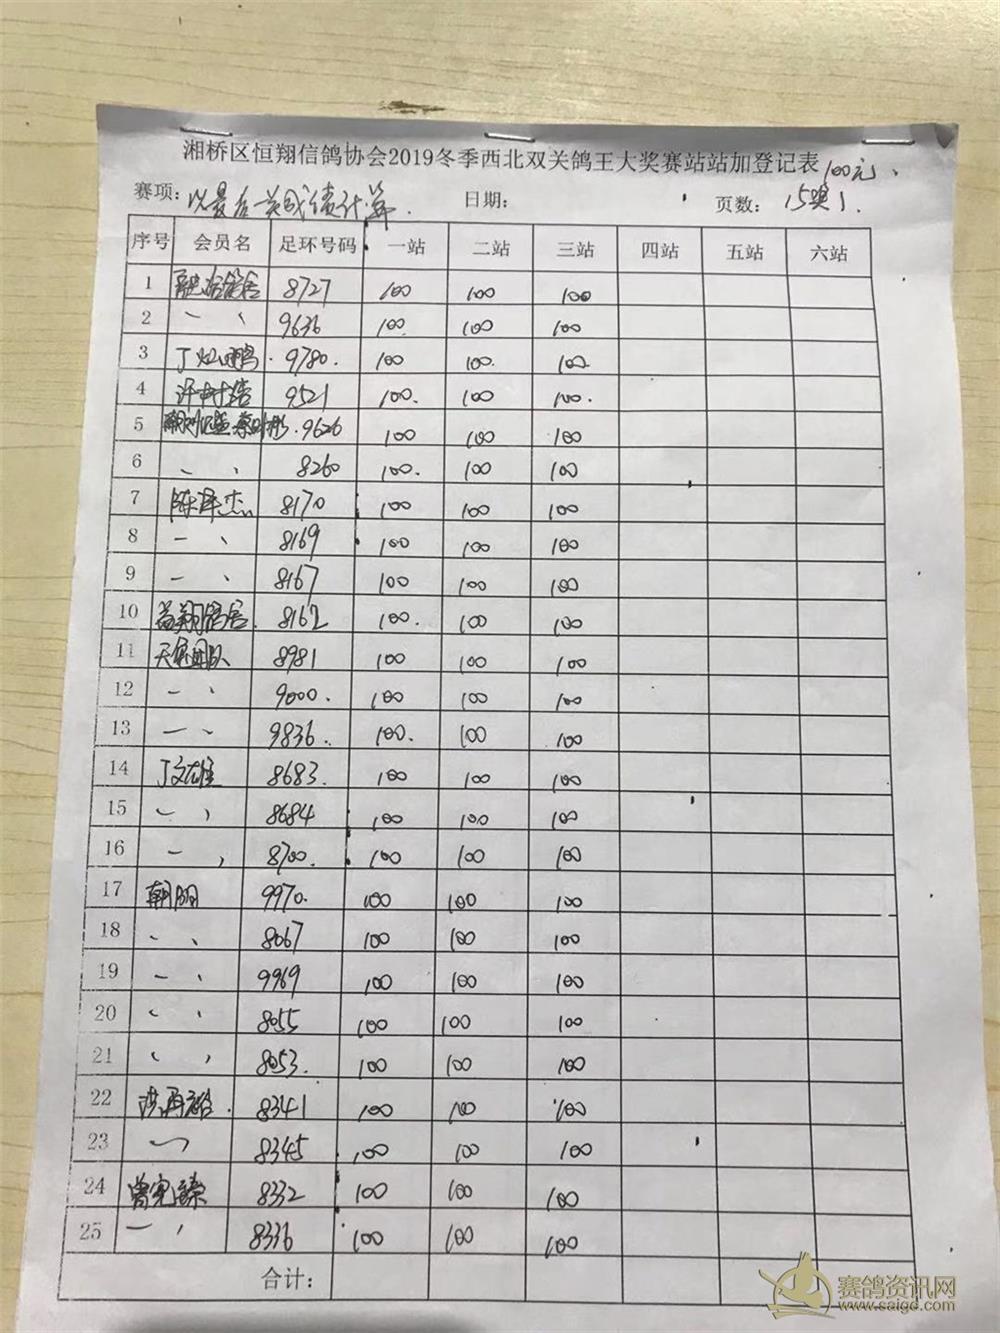 湘桥区恒翔信鸽协会2019冬季西北双关鸽王大奖赛站站加登记表 100元、
赛项：以最后关成绩计算. 日期： 页数：15奖1.
序号 会员名 足环号码 一站 二站 三站 四站 五站 六站
1 8727 100 100 100
2 〃 9636 100 100 100
3 丁灿鹏. 9780. 100 100 100
4 许树浩 9521 100. 100 100.
5 9626 100 100 100
6 〃 8260 100. 100 100
7 陈泽杰 8170 100 100 100
8 〃 8169 100 100 100
9 〃 8167 100 100 100
10 翔鸽舍. 8162 100. 100 100
11 团队 8981 100 100 100
12 〃 9000. 100 100 100
13 〃 9836. 100. 100 100
14 丁文雄 8683. 100 100 100
15 〃 8684 100 100 100
16 〃 8700. 100 100 100
17 朝阳 9970. 100 100 100
18 〃 8067 100 100 100
19 〃 9969 100 100 100
20 〃 8055 100 100 100
21 〃 8053. 100 100 100
22 洪再裕. 8341 100 100 100
23 〃 8345 100 100 100
24 曾宪臻 8332 100 100 100
25 〃 8336 100 100 100
合计：
赛鸽资讯网
www.saige.com